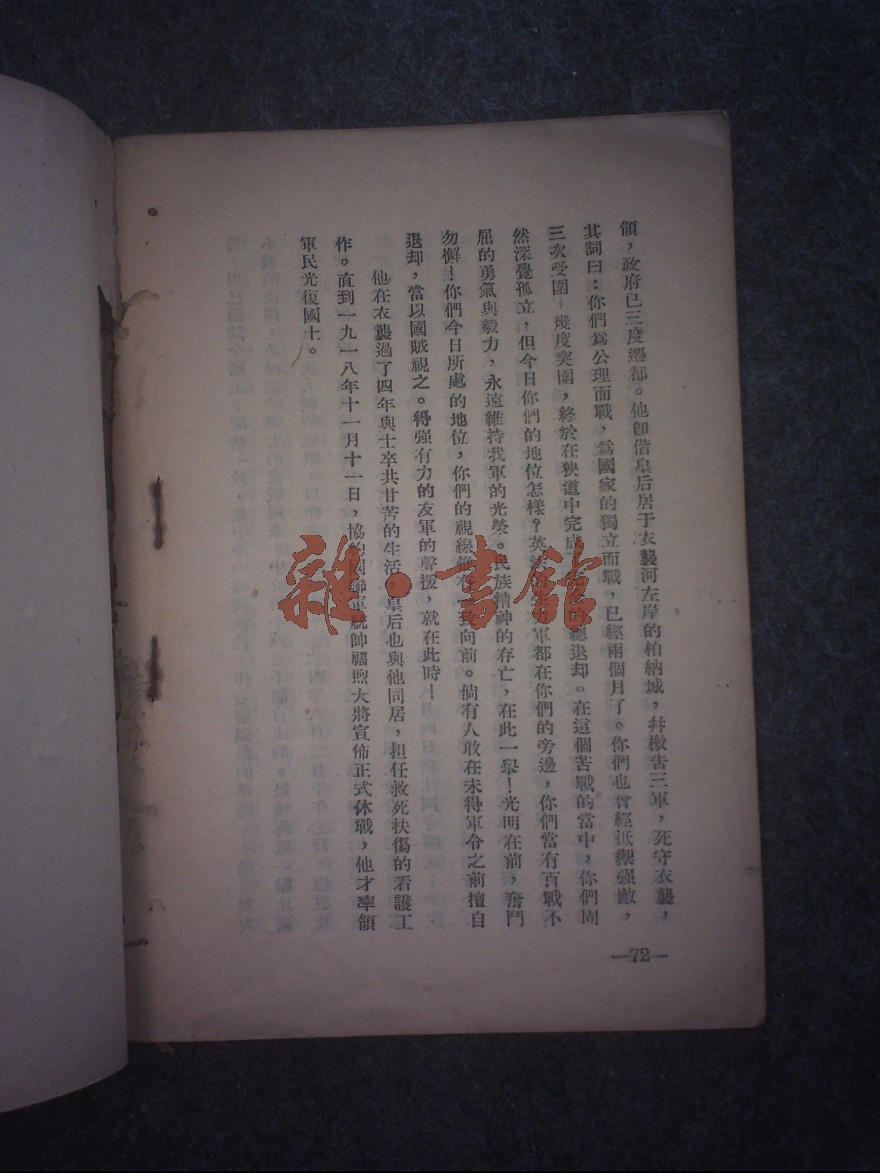 領，政府已三度遷都。他卽偕皇后居于衣襲河左岸的柏納城，幷檄吿三軍，死守衣襲，
其詞曰：你們爲公理而戰，爲國家的獨立而戰，已經兩個月了。你們也曾經抵禦强敵，
三次受圍，幾度突圍，終於在狹道中完成總退却。在這個苦戰的當中，你們固
然深覺孤立，但今日你們的地位怎樣？英法軍都在你們的旁邊，你們當有百戰不
屈的勇氣與毅力，永遠維持我軍的光榮。民族精神的存亡，在此一舉！光明在前，奮鬥
勿懈！你們今日所處的地位，你們的視線一致向前。倘有人敢在未得軍令之前擅自
退却，當以國賊視之。得强有力的友軍的聲援，就在此時！
他在衣襲過了四年與士卒共甘苦的生活，皇后也與他同居，担任救死扶傷的看護工
作。直到一九一八年十一月十一日，協約國聯軍統帥福煦大將宣佈正式休戰，他才率領
軍民光復國土。
—72—
雜·書館